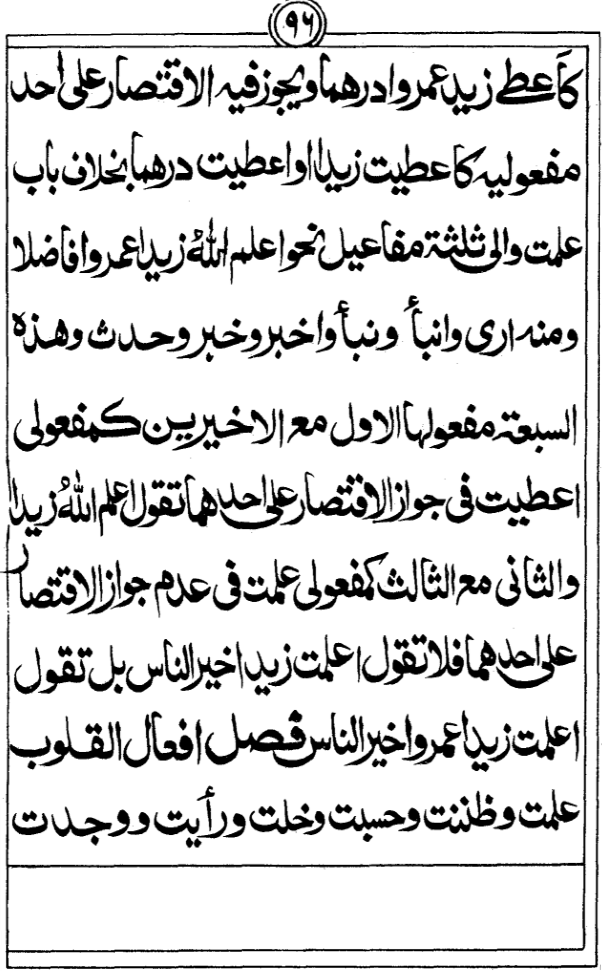 ٩٦
كأعطى زيد عمروا درهما ويجوز فيه الاقتصار على أحد
مفعوليه كاعطيت زيدا او اعطيت درهما بخلاف باب
علمت والى ثلثة مفاعيل نحو اعلم اللهُ زيدا عمروا فاضلا
ومنه ارى وانبأ ونبأ واخبر وخبر وحدث وهذه
السبعة مفعولها الاول مع الاخيرين كمفعولى
اعطيت فى جواز الاقتصار على احدهما تقول اعلم اللهُ زيدا
والثانى مع الثالث كمفعولى علمت فى عدم جواز الاقتصار
على احدهما فلا تقول اعلمت زيدا خير الناس بل تقول
اعلمت زيدا عمروا خير الناس فصل افعال القلوب
علمت وظننت وحسبت وخلت ورأيت ووجدت